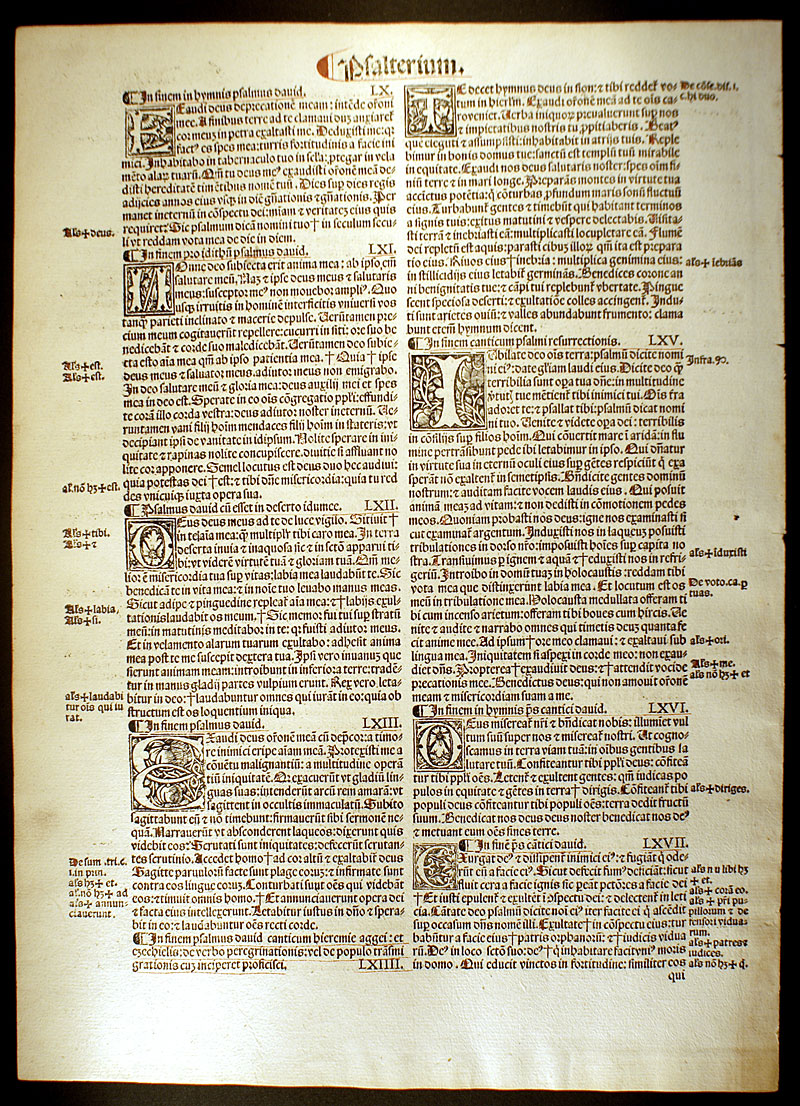 Psalterium.
In finem in hymnis psalmus dauid. LX.
Exaudi deus deprecationē meam: intēde orōni
mee. A finibus terre ad te clamaui dum anxiaret᷑
cor meum: in petra exaltasti me. Deduxisti me: q:
factꝰ es spes mea: turris fortitudinis a facie ini
mici. Inhabitabo in tabernaculo tuo in sc̄la: ptegar in vela
mēto alaꝝ tuarū. Qm̄ tu deus meꝰ exaudisti orōnē meā: de-
disti hereditatē timētibus nomē tuū. Dies sup dies regis
adijcies: annos eiꝰ vsqꝫ in diē gn̄ationis ⁊ gn̄ationis. Per
manet in eternū in cōspectu dei: miām ⁊ veritatez eius quis
requiret: Sic psalmum dicā nomini tuo† in seculum secu-
li vt reddam vota mea de die in diem.
In finem pro idithū psalmus dauid. LXI.
Nonne deo subiecta erit anima mea: ab ipso em̄
salutare meū. Naꝫ ⁊ ipse deus meus ⁊ salutaris
meus: susceptor meꝰ non mouebor ampliꝰ. Quo
usqꝫ irruitis in hominē interficitis vniuersi vos
tanqꝫ parieti inclinato ⁊ macerie depulse. Uerūtamen pre-
cium meum cogitauerūt repellere: cucurri in siti: ore suo be
nedicebāt ⁊ corde suo maledicebāt. Uerūtamen deo subie-
cta esto aīa mea qm̄ ab ipso patientia mea. † Quia† ipse
deus meus ⁊ saluator meus: adiutor meus non emigrabo.
In deo salutare meū ⁊ gloria mea: deus auxilij mei et spes
mea in deo est. Sperate in eo oīs cōgregatio ppli: effundi-
te corā illo corda vestra: deus adiutor noster in eternū. Ue-
runtamen vani filij hoīm mendaces filij hoīm in stateris: vt
decipiant ipsi de vanitate in idipsum. Nolite sperare in ini-
quitate ⁊ rapinas nolite concupiscere. diuitie si affluant no
lite cor apponere. Semel locutus est deus duo hec audiui:
quia potestas dei †est: ⁊ tibi dn̄e misericordia: quia tu red
des vnicuiqꝫ iuxta opera sua.
Psalmus dauid cū esset in deserto idumee. LXII.
Deus deus meus ad te de luce vigilo. Sitiuit †
in te aīa mea: qꝫ multiplr̄ tibi caro mea. In terra
deserta inuia ⁊ inaquosa sic ⁊ in sctō apparui ti-
bi: vt viderē virtutē tuā ⁊ gloriam tuā. Qm̄ me-
lior ē misericordia tua sup vitas: labia mea laudabūt te. Sic
benedicā te in vita mea: ⁊ in noīe tuo leuabo manus meas.
Sicut adipe ⁊ pinguedine repleat᷑ aīa mea: ⁊† labijs exul-
tationis laudabit os meum. †Sic memor fui tui sup stratū
meū: in matutinis meditabor in te: q: fuisti adiutor meus.
Et in velamento alarum tuarum exultabo: adhesit anima
mea post te me suscepit dextera tua. Ipsi vero in vanum que
sierunt animam meam: introibunt in inferiora terre: tradē-
tur in manus gladij partes vulpium erunt. Rex vero leta-
bitur in deo: †laudabuntur omnes qui iurāt in eo: quia ob
structum est os loquentium iniqua.
In finem psalmus dauid. LXIII.
Exaudi deus orōnē meā cū dep̄cor: a timo-
re inimici eripe aīam meā. Protexisti me a
cōuētu malignantiū: a multitudine operā
tiū iniquitatē. Q: exacuerūt vt gladiū lin-
guas suas: intenderūt arcū rem amarā: vt
sagittent in occultis immaculatū. Subito
sagittabunt eū ⁊ nō timebunt: firmauerūt sibi sermonē ne-
quā. Narrauerūt vt absconderent laqueos: dixerunt quis
videbit eos: Scrutati sunt iniquitates: defecerūt scrutan-
tes scrutinio. Accedet homo† ad cor altū ⁊ exaltabit᷑ deus
Sagitte paruuloꝝ facte sunt plage eorūꝫ: ⁊ infirmate sunt
contra eos lingue eorūꝫ. Conturbati sunt oēs qui videbāt
eos: ⁊ timuit omnis homo. †Et annunciauerunt opera dei
⁊ facta eius intellexerunt. Letabitur iustus in dn̄o ⁊ spera-
bit in eo: ⁊ laudabuntur oēs recti corde.
In finem psalmus dauid canticum hieremie aggei: et
ezechielis: de verbo peregrinationis: vel de populo trāsmi
grationis cuꝫ inciperet proficisci. LXIIII.
Te decet hymnus deus in sion: ⁊ tibi reddet᷑ vo-
tum in hierl̄m. Exaudi orōnē meā ad te oīs ca-
ro veniet. Uerba iniquoꝝ preualuerunt sup nos
⁊ impietatibus nostris tu ppitiaberis. Beatꝰ
quē elegisti ⁊ assumpsisti: inhabitabit in atrijs tuis. Reple
bimur in bonis domus tue: sanctū est templū tuū mirabile
in equitate. Exaudi nos deus salutaris noster: spes oīm fi-
niū terre ⁊ in mari longe. Preparās montes in virtute tua
accictus potētia: q̄ cōturbas pfundum maris sonū fluctuū
eius. Turbabunt᷑ gentes ⁊ timebūt qui habitant terminos
a signis tuis: exitus matutini ⁊ vespere delectabis. Uisita-
sti terrā ⁊ inebriasti eā: multiplicasti locupletare eā. Flumē
dei repletū est aquis: parasti cibuꝫ illoꝝ qm̄ ita est prepara
tio eius. Riuos eius†inebria: multiplica genimina eius:
in stillicidijs eius letabit᷑ germinās. Benedices corone an
ni benignitatis tue: ⁊ cāpi tui replebunt᷑ vbertate. Pingue
scent speciosa deserti: ⁊ exultatiōe colles accingent᷑. Indu-
ti sunt arietes ouiū: ⁊ valles abundabunt frumento: clama
bunt etem̄ hymnum dicent.
In finem canticum psalmi resurrectionis. LXV.
Iubilate deo oīs terra: psalmū dicite nomi
ni eiꝰ: date gl̄iam laudi eius. Dicite deo qꝫ
terribilia sunt opa tua dn̄e: in multitudine
v̄tutꝭ tue mētient᷑ tibi inimici tui. Oīs tra
adoret te: ⁊ psallat tibi: psalmū dicat nomi
ni tuo. Uenite ⁊ videte opa dei: terribilis
in cōsilijs sup filios hoīm. Qui cōuertit mare ī aridā: in flu
mine pertrāsibunt pede ibi letabimur in ipso. Qui dn̄atur
in virtute sua in eternū oculi eius sup gētes respiciūt q̄ exa
sperāt nō exaltent᷑ in semetipsis. Bn̄dicite gentes dominū
nostrum: ⁊ auditam facite vocem laudis eius. Qui posuit
animā meaꝫ ad vitam: ⁊ non dedisti in cōmotionem pedes
meos. Quoniam probasti nos deus: igne nos examinasti si
cut examinat᷑ argentum. Induxisti nos in laqueuꝫ posuisti
tribulationes in dorso nr̄o: imposuisti hoīes sup capita no
stra. Transiuimus p ignem ⁊ aquā ⁊†eduxisti nos in refri-
geriū. Introibo in domū tuaꝫ in holocaustis: reddam tibi
vota mea que distinxerunt labia mea. Et locutum est os
meū in tribulatione mea. Holocausta medullata offeram ti
bi cum incenso arietum: offeram tibi boues cum hircis. Ue
nite ⁊ audite ⁊ narrabo omnes qui timetis deuꝫ quanta fe
cit anime mee. Ad ipsum†ore meo clamaui: ⁊ exaltaui sub
lingua mea. Iniquitatem si aspexi in corde meo: non exau-
diet dn̄s. Propterea†exaudiuit deus: ⁊†attendit voci de
precationis mee. Benedictus deus: qui non amouit orōnē
meam ⁊ misericordiam suam a me.
In finem in hymnis ps̄ cantici dauid. LXVI.
Deus misereat᷑ nr̄i ⁊ bn̄dicat nobis: illumiet vul
tum suū super nos ⁊ misereat᷑ nostri. Ut cogno-
scamus in terra viam tuā: in oībus gentibus sa
lutare tuū. Confiteantur tibi ppli deus: cōfiteā
tur tibi ppli oēs. Letent᷑ ⁊ exultent gentes: qm̄ iudicas po
pulos in equitate ⁊ gētes in terra† dirigis. Cōfiteant᷑ tibi
populi deus cōfiteātur tibi populi oēs: terra dedit fructū
suum. Benedicat nos deus deus noster benedicat nos deꝰ
⁊ metuant eum oēs fines terre.
In finē ps̄ cātici dauid. LXVII.
Exurgat deꝰ ⁊ dissipent᷑ inimici eiꝰ: ⁊ fugiāt q̄ ode-
rūt eū a facie eiꝰ. Sicut deficit fumꝰ deficiāt: sicut
fluit cera a facie ignis sic peāt pctōres a facie dei
†Et iusti epulent᷑ ⁊ exultēt ī cōspectu dei: ⁊ delectent᷑ in leti
cia. Cātate deo psalmū dicite noī eiꝰ: iter facite ei q̄ ascēdit
sup occasum dn̄s nomē illi. Exultate†in cōspectu eius: tur
babūtur a facie eius†patris orphanoꝝ: ⁊†iudicis vidua
rū. Deꝰ in loco sctō suo: deꝰ†q̄ inhabitare facit vniꝰ moris
in domo. Qui educit vinctos in fortitudine: similiter eos
qui
Als†deus.
Als†est.
Als†est.
al. nō hꝫ†est.
Als†tibi.
Als†⁊
Als†labia.
Als†si.
als†laudabi
tur oīs qui iu
rat.
De sum. tri. c.
i. in prin.
als hꝫ† et.
al. nō hꝫ† ad
als† annun-
ciauerunt.
De cōse. dis. i.
c. hi duo.
als†iebriās
Infra. 90.
als†īduxisti
De voto. ca. p
tuas.
als†ori.
Als†me.
als nō hꝫ† et
als†diriges.
als n u libi hꝫ
† et.
als† corā eo.
als† pr̄i pu-
pillorum ⁊ de
fensori vidua-
rum.
als†patres⁊
iudices.
als nō hꝫ† q̄.